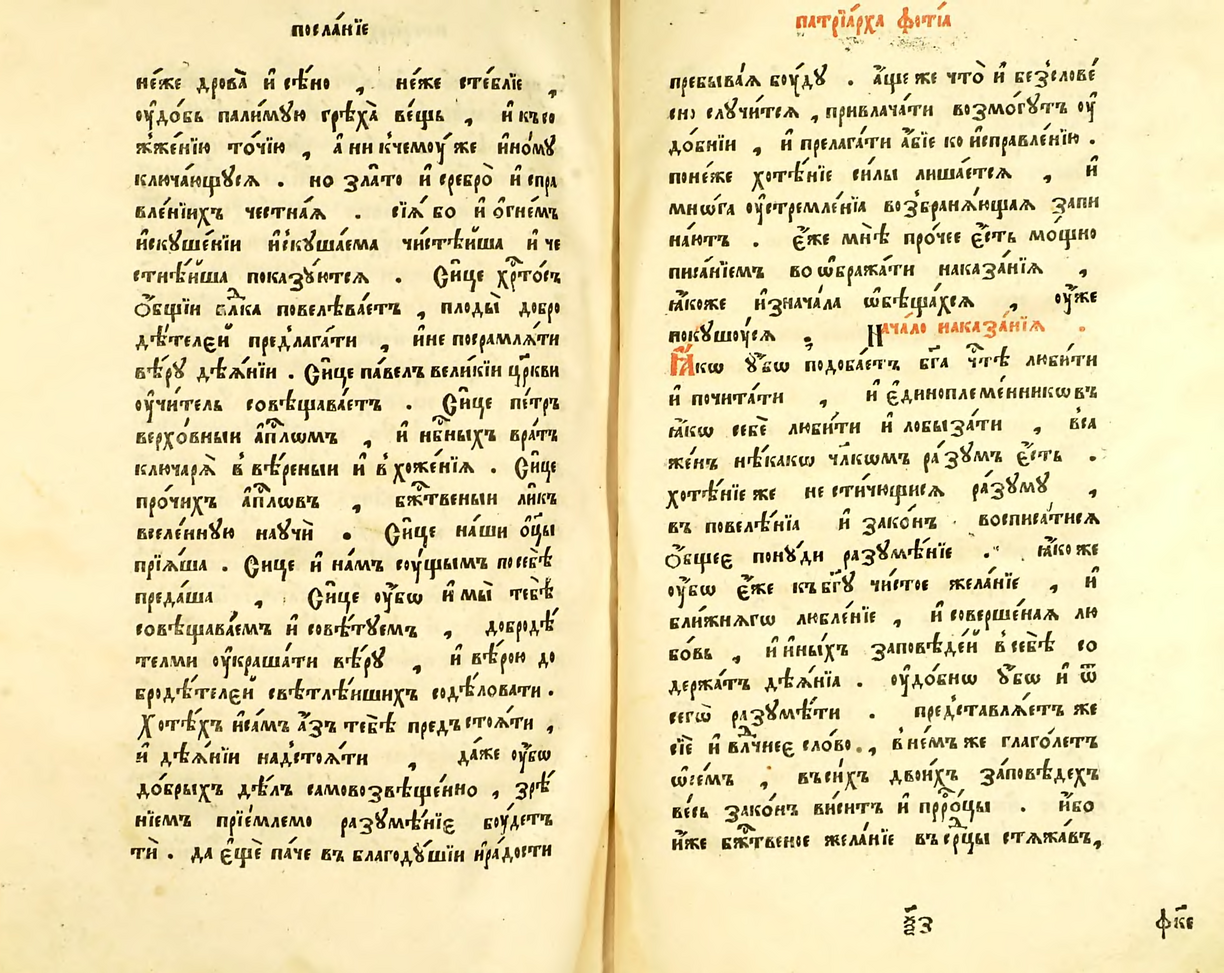 посла́нїе
не́же дрова̀ и҆ сѣ́но , не́же сте́блїе ,
ᲂу҆до́бь пали́мꙋю грѣха̀ ве́щь , и҆ къ со
жже́нїю то́чїю , а҆ ни к̾чемоу́ же и҆но́мꙋ
ключа́ющꙋсѧ . но зла́то и҆ сребро̀ и҆ спра
вле́нїихъ че́стнаѧ . сїѧ́ бо и҆ ѻ҆гне́мъ
и҆скꙋше́нїи и҆скꙋша́ема чистѣ́йша и҆ че
стнѣ́йша показꙋ́ютсѧ . Си́це хрⷭ҇то́съ
ѻ҆́бщїи влⷣка повелѣва́етъ , плоды̀ добро
дѣ́телєй предлага́ти , и҆ не посрамлѧ́ти
вѣ́рꙋ дѣѧ́нїи . Си́це па́велъ вели́кїи цр҃кви
ᲂу҆чи́тель совѣщава́етъ . Си́це пе́тръ
верхо́вныи а҆пⷭ҇лѡмъ , и҆ нбⷭ҇ныхъ вра́тъ
ключа́рѧ в̾вѣ́реныи и҆ в̾хоже́нїѧ . Си́це
про́чихъ а҆пⷭ҇лѡвъ , бжⷭ҇твеныи ли́къ
вселе́ннꙋю наꙋчѝ . Си́це на́ши ѻ҆ц҃ы
прїѧ́ша . Си́це и҆ на́мъ соу́щымъ по себѣ̀
преда́ша , Си́це ᲂу҆́бѡ и҆ мы̀ тебѣ̀
совѣщава́емъ и҆ совѣ́тꙋемъ , добродѣ́
телми ᲂу҆краша́ти вѣ́рꙋ , и҆ вѣ́рою до
бродѣ́телєй свѣтлѣ́ишихъ содѣ́ловати .
Хотѣ́хъ и҆ са́мъ а҆́зъ тебѣ̀ предъстоѧ́ти ,
и҆ дѣѧ́нїи надстоѧ́ти , да́же ᲂу҆́бѡ
до́брыхъ дѣ́лъ самовозвѣще́нно , зрѣ́
нїемъ прїе́млемо разꙋмѣ́нїє боу́детъ
тѝ . да є҆щѐ па́че въ благодꙋ́шїи и҆ ра́дости
патрїа́рха фо́тїа
пребыва́ѧ боу́дꙋ . а҆́ще же что̀ и҆ без̾слове́
сно слꙋчи́тсѧ , привлача́ти возмо́гꙋтъ ᲂу҆
до́бнїи , и҆ прелага́ти а҆́бїе ко и҆справле́нїю .
поне́же хотѣ́нїе си́лы лиша́етсѧ , и҆
мнѡ́га ᲂу҆стремле́нїа воз̾бранѧ́ющаѧ запи
на́ютъ . є҆́же мнѣ̀ про́чее є҆́сть мо́щно
писа́нїемъ во ѡ҆бража́ти наказа́нїѧ ,
ꙗ҆́коже и҆знача́ла ѡ҆бѣща́хсѧ , ᲂу҆́же
покꙋшоу́сѧ , Нача́ло наказа́нїѧ .
Ꙗ҆́кѡ ᲂу҆́бѡ подоба́етъ бг҃а чⷭ҇тѣ люби́ти
и҆ почита́ти , и҆ є҆диноплеме́нникѡвъ
ꙗ҆́кѡ себѐ люби́ти и҆ лобыза́ти , вса
же́нъ нѣ́какѡ чл҃кѡмъ ра́зꙋмъ є҆́сть .
хотѣ́нїе же не стичю́щисѧ ра́зꙋмꙋ ,
въ повелѣ́нїа и҆ зако́нъ восписа́тисѧ
ѻ҆́бщеє понꙋ́ди разꙋмѣ́нїе . ꙗ҆́ко же
ᲂу҆́бѡ є҆́же къ бг҃ꙋ чи́стое жела́нїе , и҆
бли́жнѧгѡ любле́нїе , и҆ соверше́наѧ лю
бо́вь , и҆ и҆ны́хъ за́повѣде́й в̾ себѣ̀ со
держа́тъ дѣѧ́нїа . ᲂу҆до́бнѡ ᲂу҆́бѡ и҆ ѿ
сегѡ̀ разꙋмѣ́ти . представлѧ́етъ же
сїѐ и҆ влⷣчнеє сло́во , в̾ не́мъ же глаго́летъ
ѡ҆ се́мъ , въ си́хъ двои́хъ за́повѣдехъ
ве́сь зако́нъ ви́ситъ и҆ прⷪ҇ро́цы . и҆́бо
и҆́же бжⷭ҇твеное жела́нїе въ срⷣцы стѧжа́въ ,
х҃з фк҃е